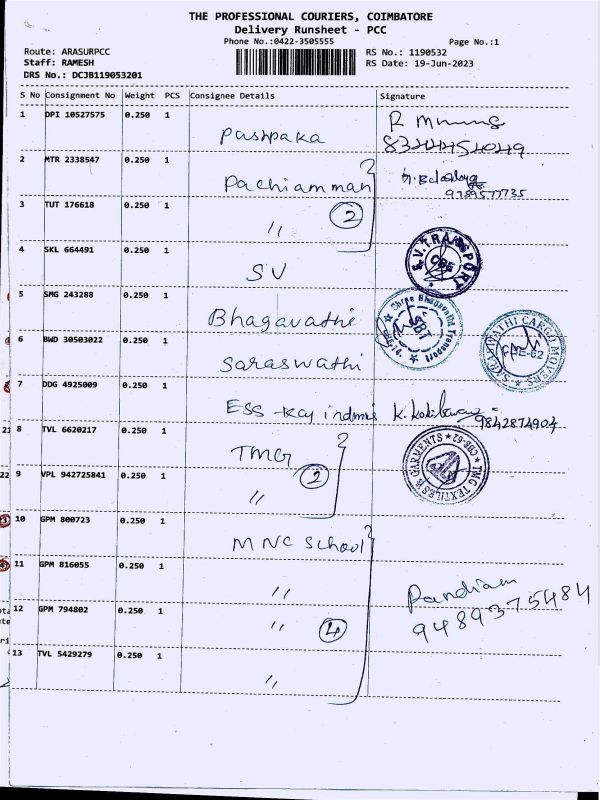 THE PROFESSIONAL COURIERS, COIMBATORE
Delivery Runsheet - PCC
Phone No.:0422-3505555
Page No.:1
Route: ARASURPCC
RS No.: 1190532
Staff: RAMESH
RS Date: 19-Jun-2023
DRS No.: DCJB119053201
S No Consignment No Weight PCS Consignee Details Signature
1 DPI 10527575 0.250 1 Pushpaka R
8344454049
2 MTR 2338547 0.250 1 Pachiamman
9789577735
3 TUT 176618 0.250 1 〃 2
4 SKL 664491 0.250 1 SV S.V.TRANSPORT CBE
5 SMG 243288 0.250 1 Bhagavathi Shree Bhagavathi Transport SBT
6 BWD 30503022 0.250 1 Saraswathi SARASWATHI CARGO MOVERS CBE-62
7 DDG 4925009 0.250 1 ESS - Kay K.
9842874904
8 TVL 6620217 0.250 1 TMG TMG TEXTILES & GARMENTS CBE-62
9 VPL 942725841 0.250 1 〃 2
10 GPM 800723 0.250 1 MNC School
11 GPM 816055 0.250 1 〃 Pandian
9489375484
12 GPM 794802 0.250 1 〃 4
13 TVL 5429279 0.250 1 〃